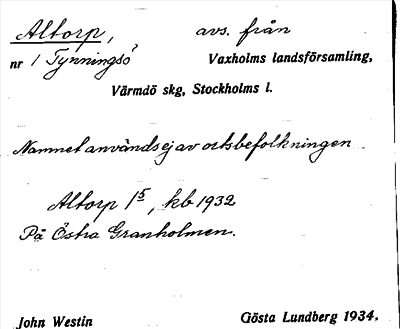 Altorp, avs. från
nr 1 Tynningsö Vaxholms landsförsamling,
Värmdö skg, Stockholms l.
Namnet används ej av ortsbefolkningen.
Altorp 1 5, kb 1932
På Östra Granholmen.
John Westin Gösta Lundberg 1934.